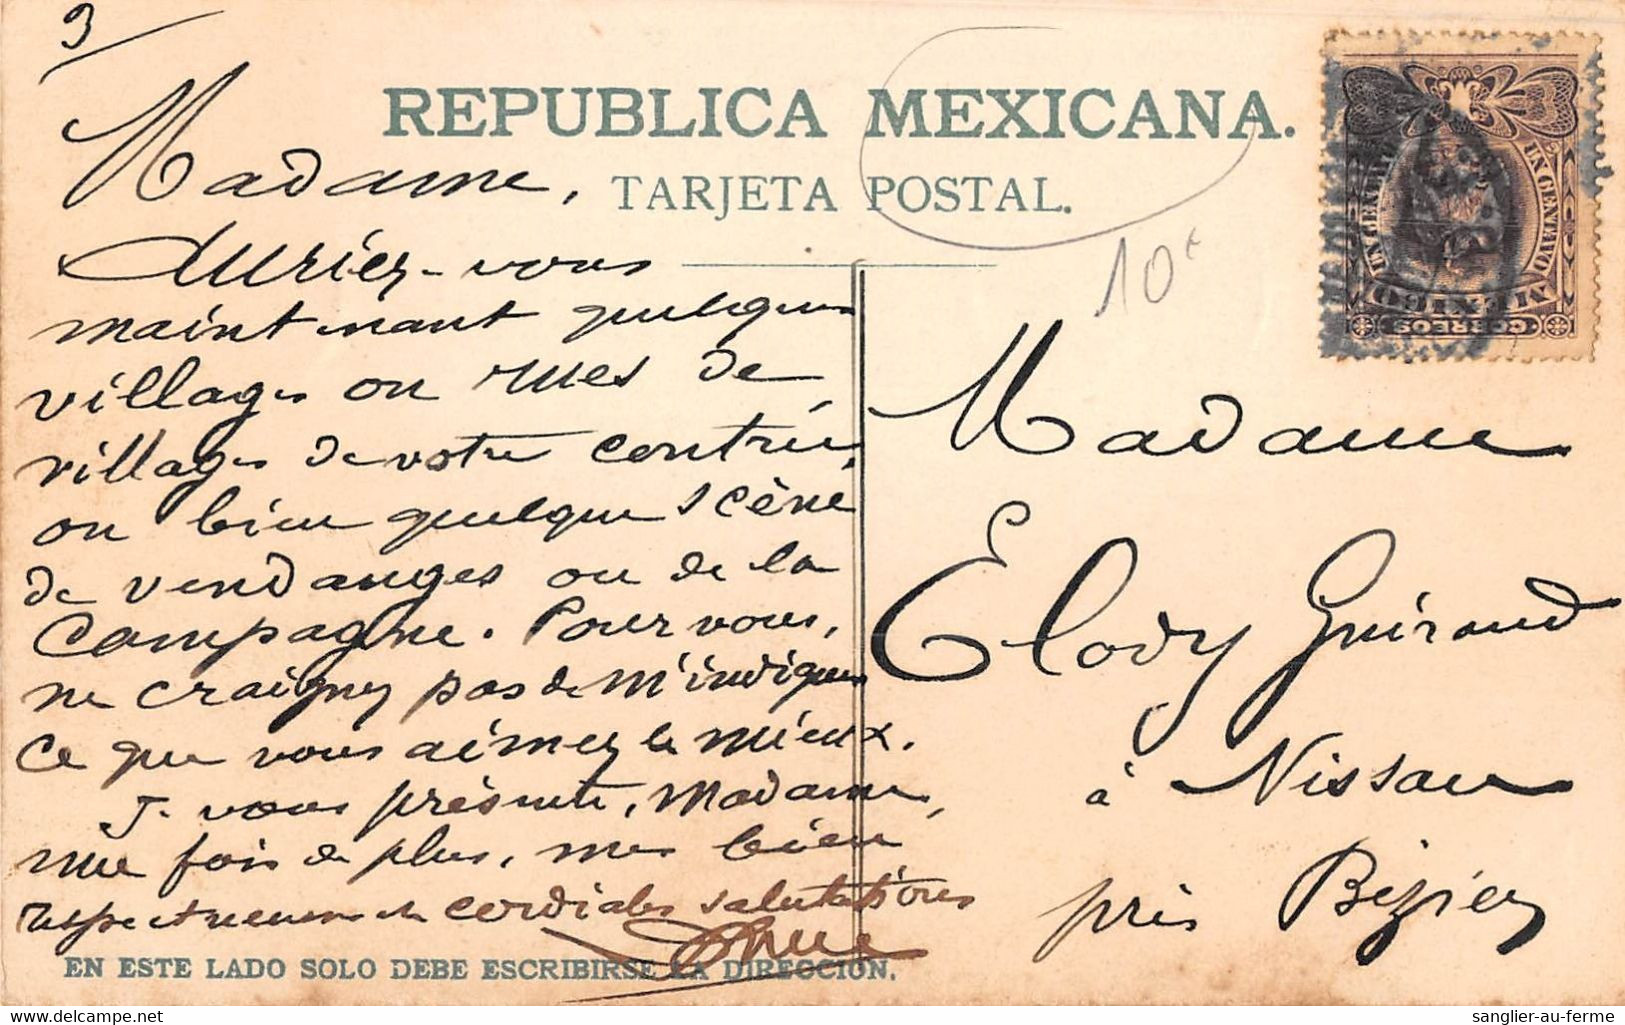 3
REPUBLICA MEXICANA.
TARJETA POSTAL.
Madame,
Auriez-vous
maintenant quelques
villages ou rues de
villages de votre contrée,
ou bien quelque scène
de vendanges ou de la
Campagne. Pour vous,
ne craignez pas de m'indiquer
ce que vous aimez le mieux.
Je vous présente, Madame,
une fois de plus, mes bien
respectueuses et cordiales salutations
EN ESTE LADO SOLO DEBE ESCRIBIRSE LA DIRECCION.
10€
UN CENTAVO
UN CENTAVO
MEXICO
CORREOS
Madame
Elody Guiraud
à Nissan
près Béziers
https://www.delcampe.net
sanglier-au-ferme